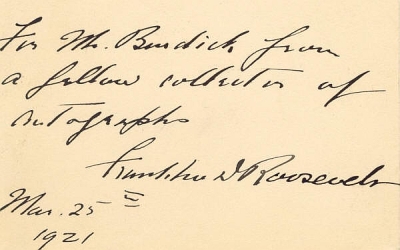 For Mr. Burdick from
a fellow collector of
autographs
Franklin D Roosevelt
Mar. 25th
1921